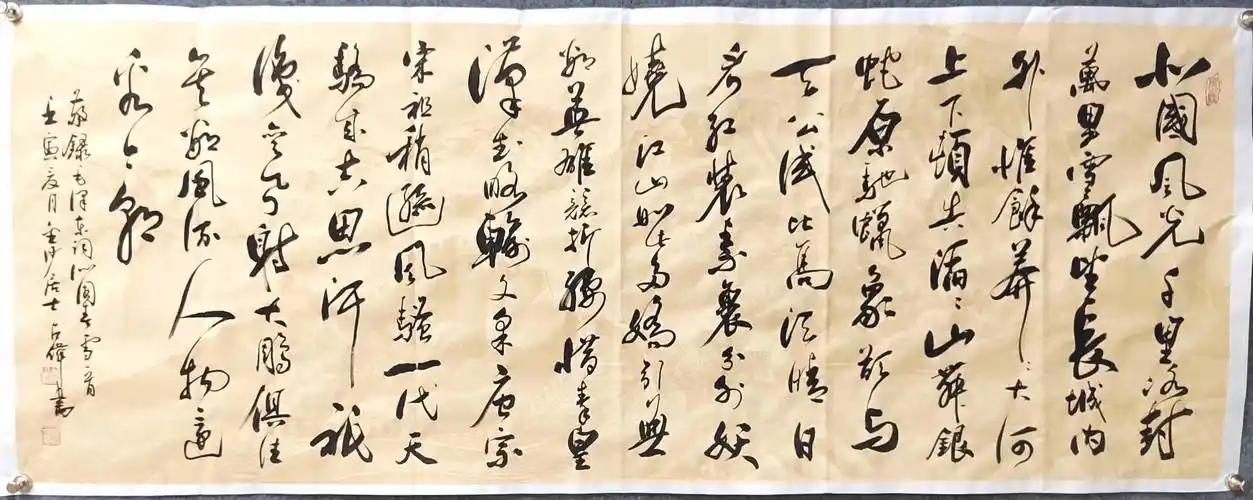 北國風光千里冰封
萬里雪飄望長城內
外惟餘莽莽大河
上下頓失滔滔山舞銀
蛇原馳蠟象欲與
天公試比高須晴日
看紅裝素裹分外妖
嬈江山如此多嬌引無
數英雄競折腰惜秦皇
漢武略輸文采唐宗
宋祖稍遜風騷一代天
驕成吉思汗祇
識彎弓射大鵰俱往
矣數風流人物還
看今朝
敬錄毛澤東詞沁園春雪一首
壬寅夏月居士占偉書